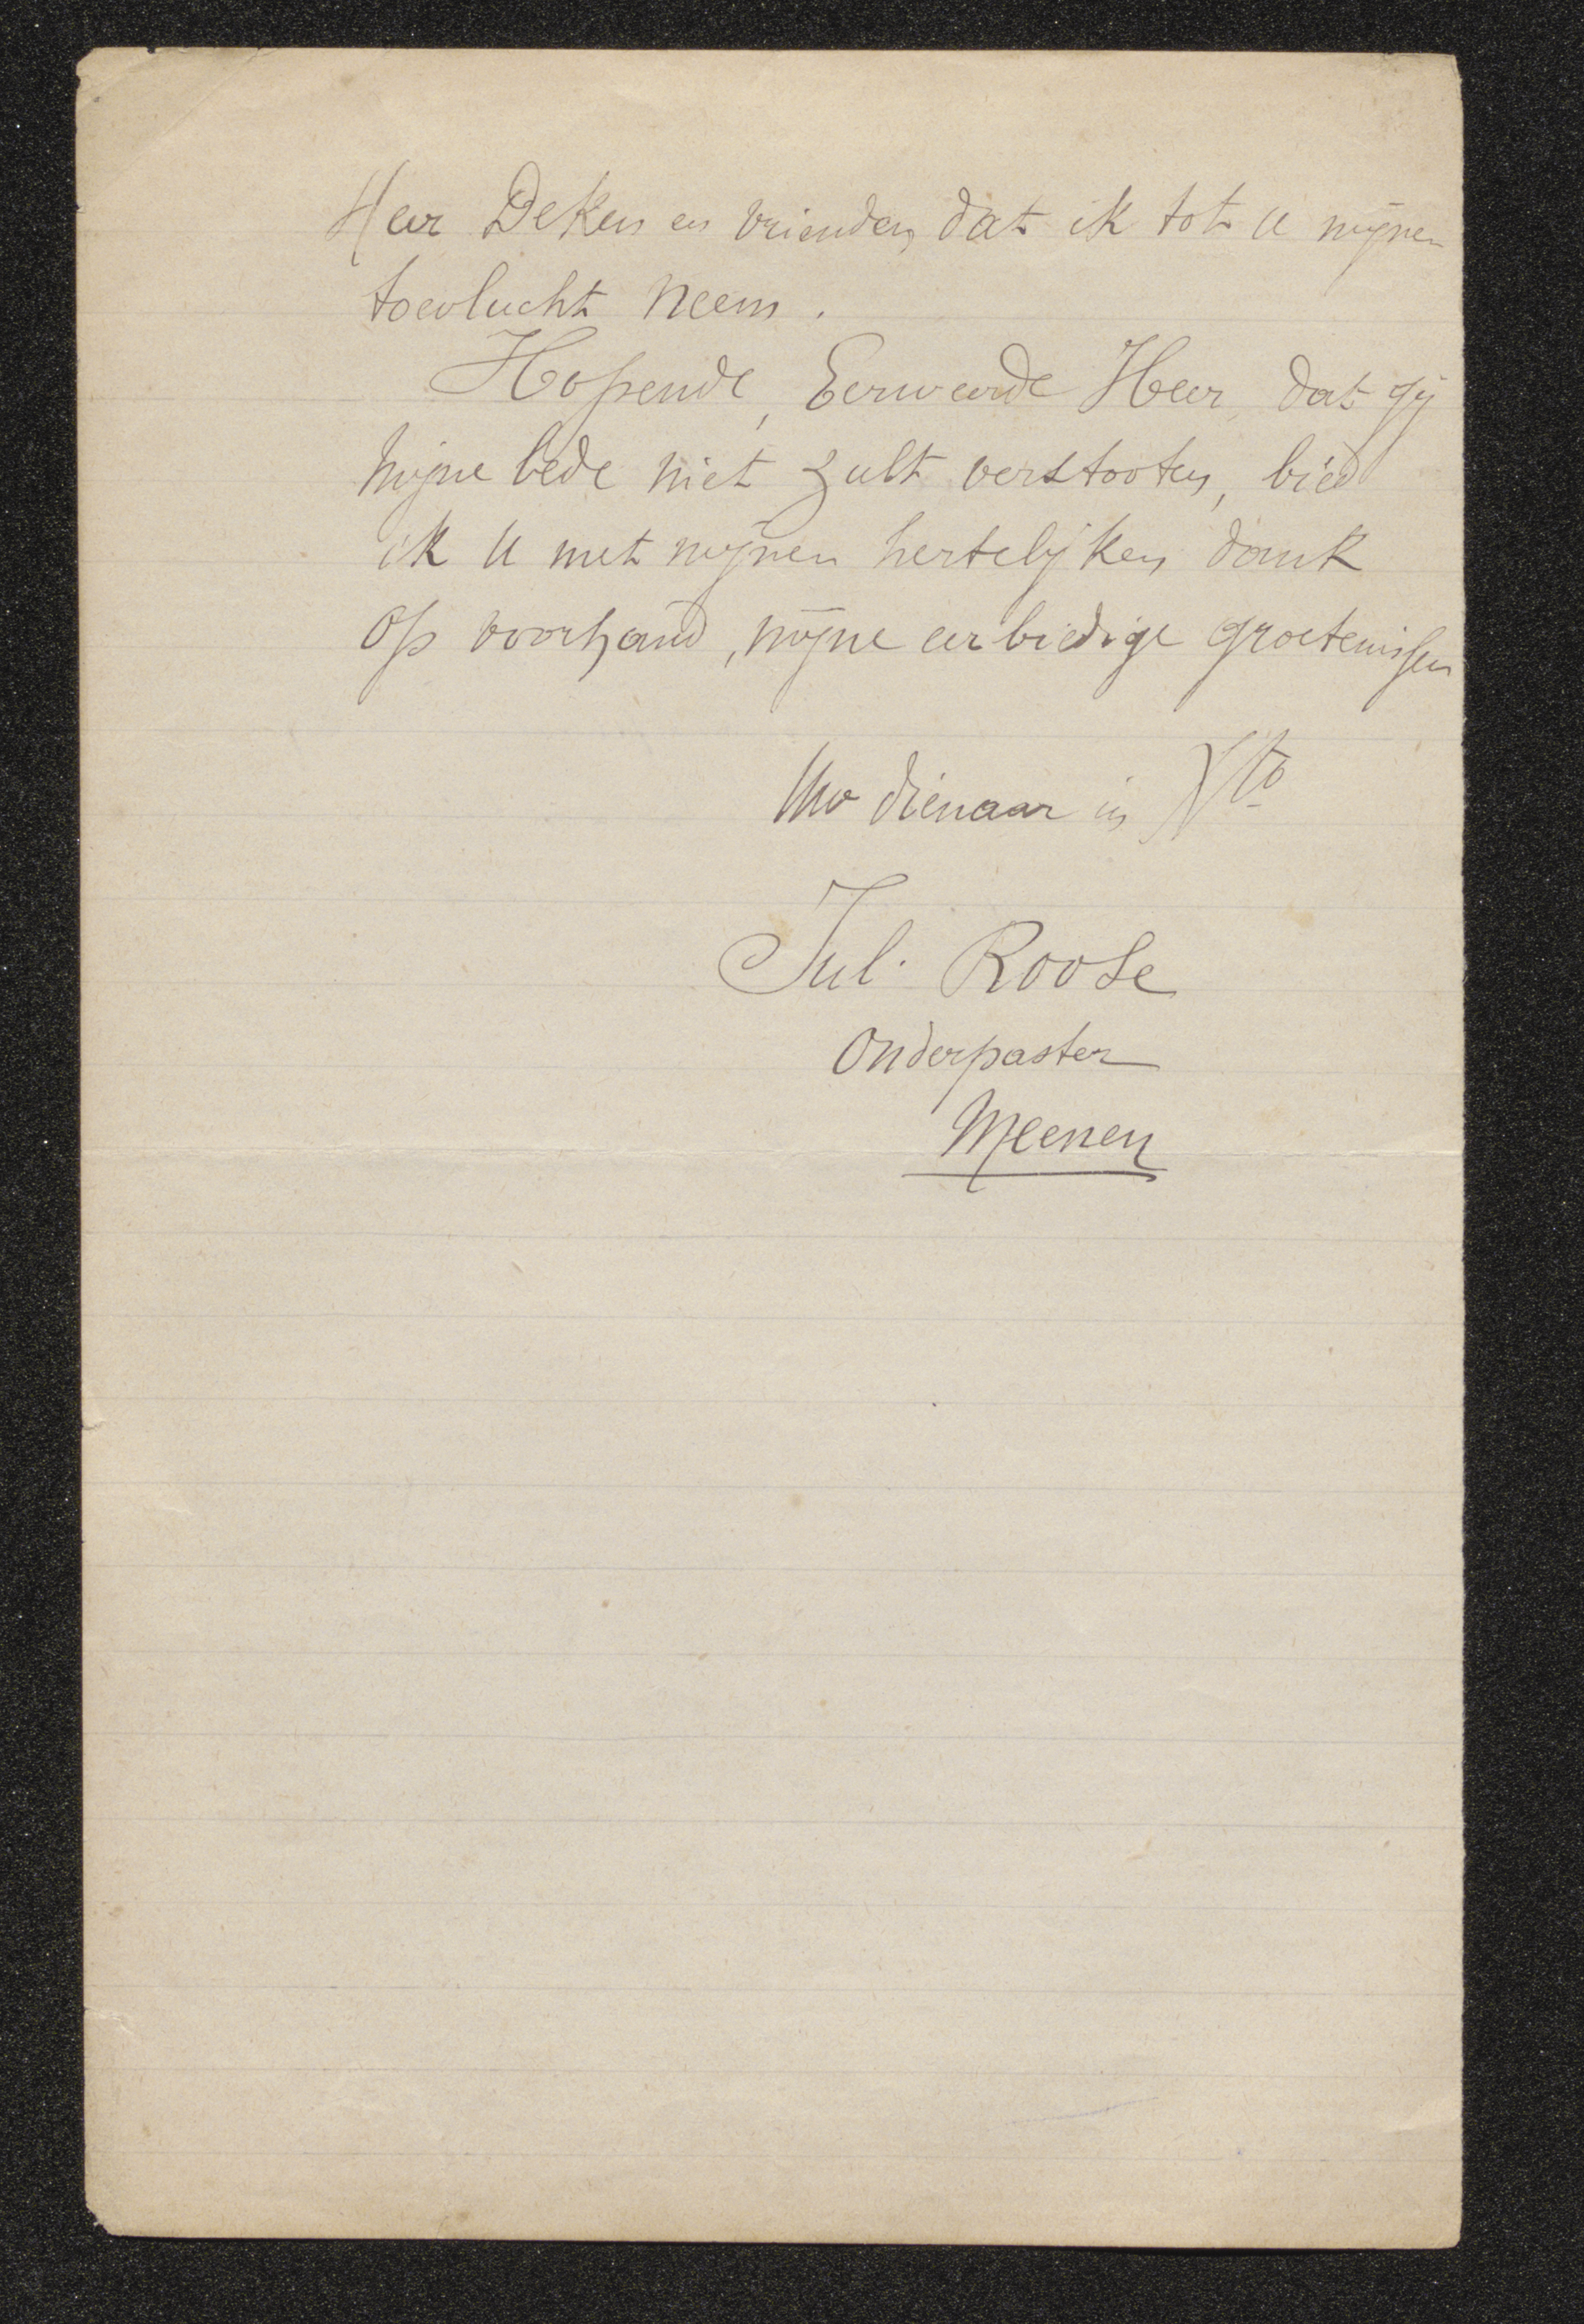 Heer Deken en vrienden, dat ik tot U mijnen
toevlucht neem.
Hopende, Eerweerde Heer, dat gij
mijne bede niet zult verstooten, bied
ik U met mijnen hertelijken dank
op voorhand, mijne eerbiedige groetenissen
Uw dienaar in Xto
Jul. Roose
Onderpaster
Meenen